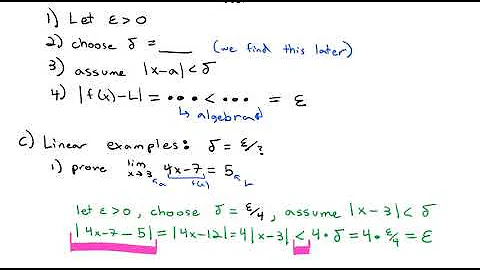 1) Let ε > 0
2) choose δ = ___ (we find this later)
3) assume |x-a| < δ
4) |f(x)-L| = ••• < ••• = ε
↳ algebra
c) Linear examples: δ = ε/?
1) prove lim x→3 4x-7 = 5
a f(x) L
let ε>0, choose δ = ε/4, assume |x-3| < δ
|4x-7-5| = |4x-12| = 4|x-3| < 4·δ = 4·ε/4 = ε